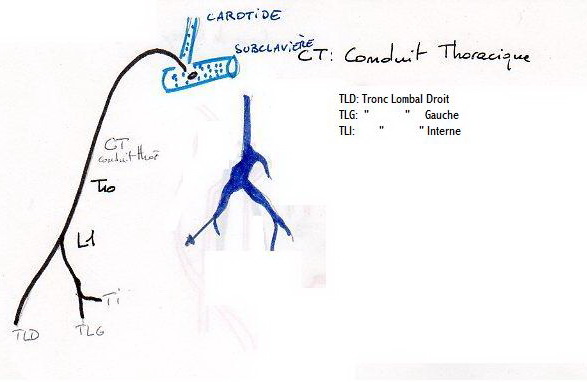 CAROTIDE
SUBCLAVIÈRE
CT: Conduit Thoracique
TLD: Tronc Lombal Droit
TLG: " " Gauche
TLI: " " Interne
CT
conduit thoʳ
T10
L1
Ti
TLD
TLG